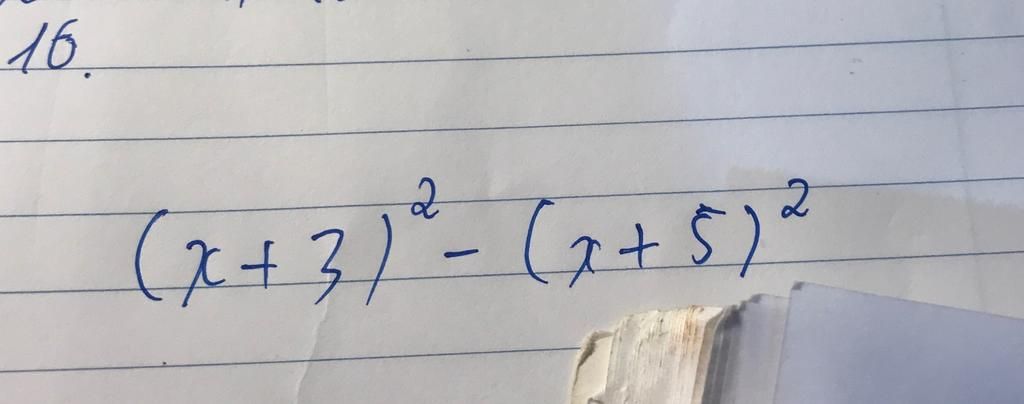 16.
(x+3)² - (x+5)²